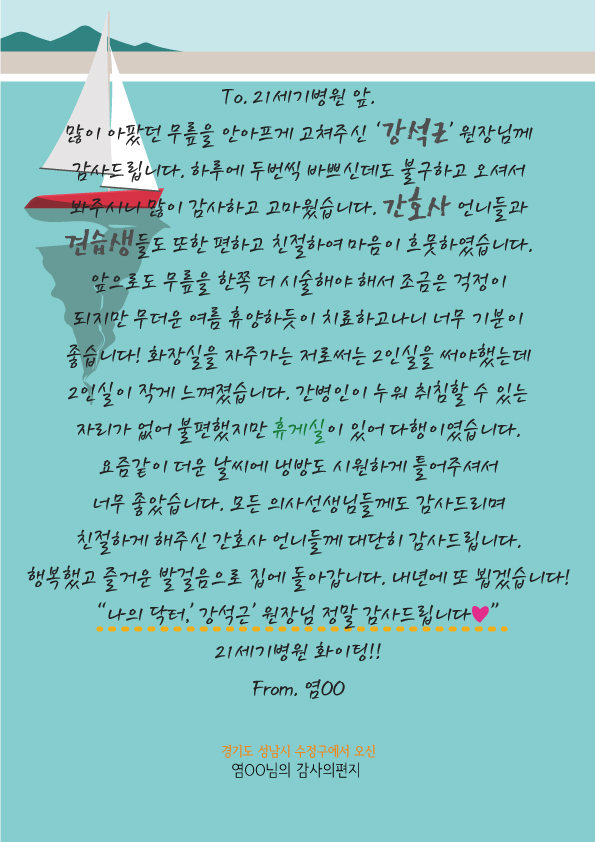 To. 21세기병원 앞.
많이 아팠던 무릎을 안아프게 고쳐주신 '강석근' 원장님께
감사드립니다. 하루에 두번씩 바쁘신데도 불구하고 오셔서
봐주시니 많이 감사하고 고마웠습니다. 간호사 언니들과
견습생들도 또한 편하고 친절하여 마음이 흐뭇하였습니다.
앞으로도 무릎을 한쪽 더 시술해야 해서 조금은 걱정이
되지만 무더운 여름 휴양하듯이 치료하고나니 너무 기분이
좋습니다! 화장실을 자주가는 저로써는 2인실을 써야했는데
2인실이 작게 느껴졌습니다. 간병인이 누워 취침할 수 있는
자리가 없어 불편했지만 휴게실이 있어 다행이였습니다.
요즘같이 더운 날씨에 냉방도 시원하게 틀어주셔서
너무 좋았습니다. 모든 의사선생님들께도 감사드리며
친절하게 해주신 간호사 언니들께 대단히 감사드립니다.
행복했고 즐거운 발걸음으로 집에 돌아갑니다. 내년에 또 뵙겠습니다!
"나의 닥터,' 강석근' 원장님 정말 감사드립니다♥"
21세기병원 화이팅!!
From. 염OO
경기도 성남시 수정구에서 오신
염OO님의 감사의편지